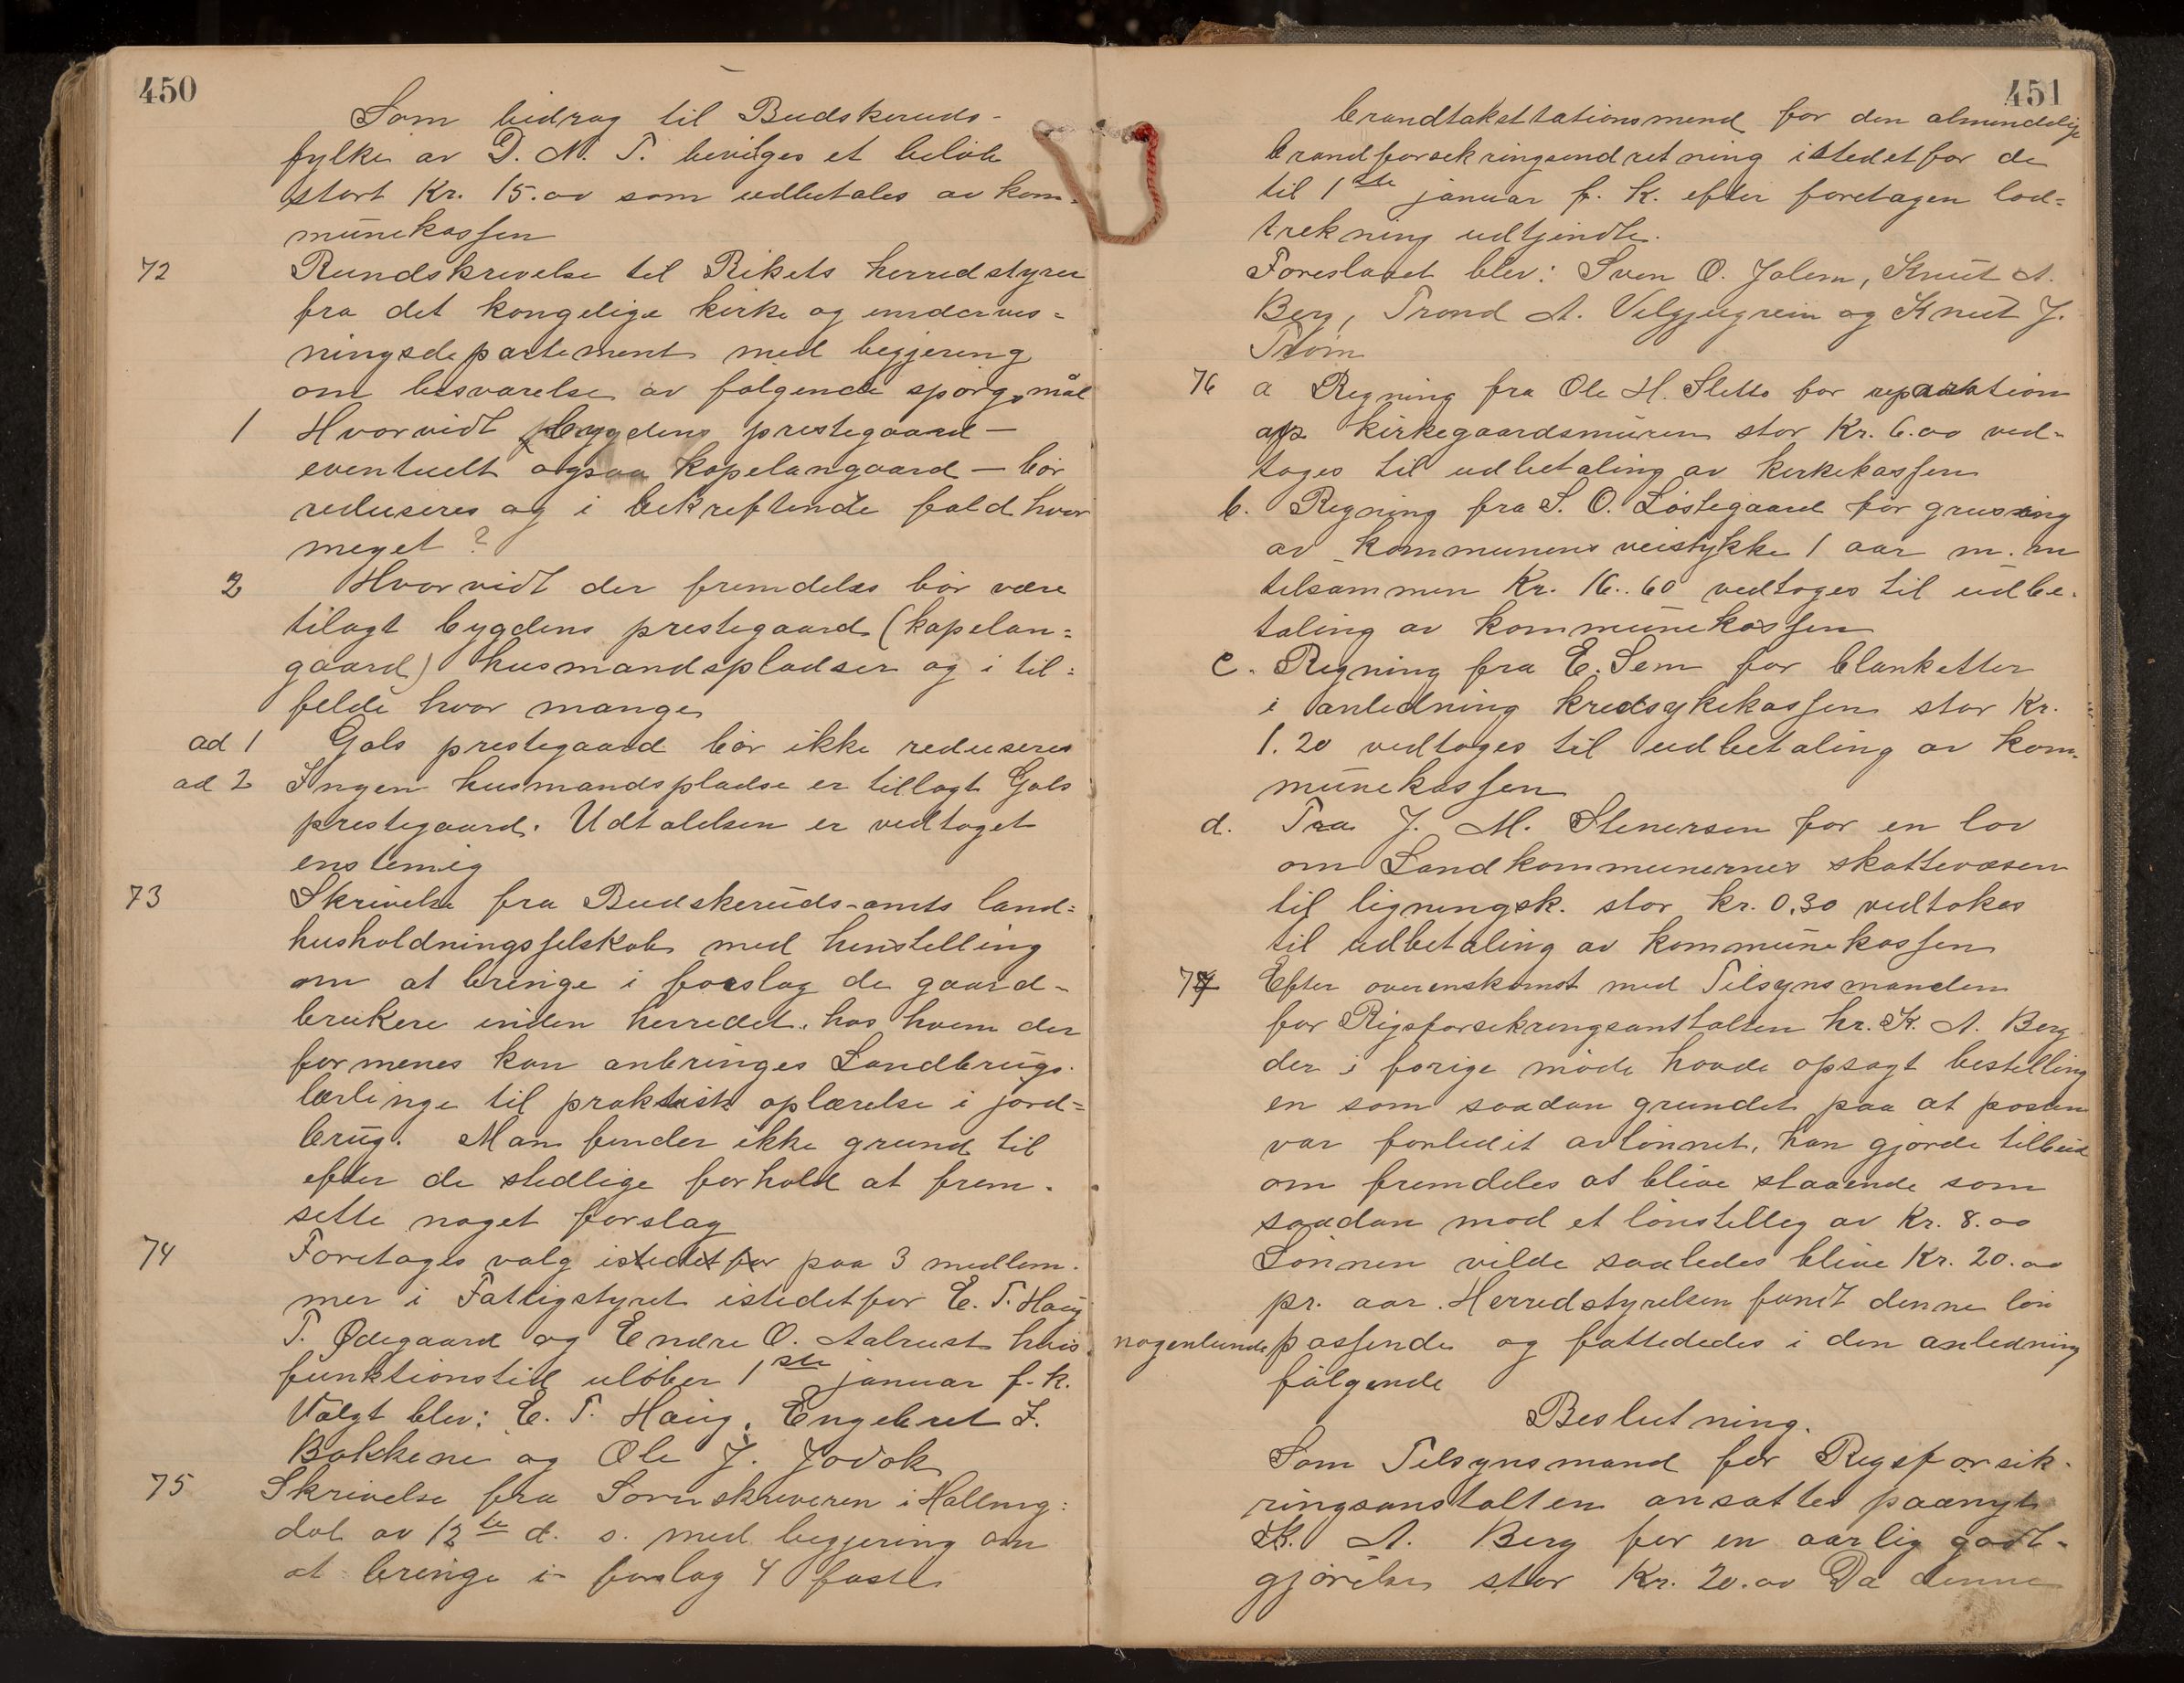 450
Som bidrag til Budskeruds-
fylke av D. N. T. bevilges et beløb
stort Kr. 15.00 som udbetales av kom-
munekassen
72 Rundskrivelse til Rikets herredstyrer
fra det kongelige kirke og undervis=
ningsdepartement med begjering
om besvarelse av følgende spørgsmål
1 Hvorvidt bygdens prestegaard —
eventuelt ogsaa kapelangaard — bør
reduseres og i bekreftende fald hvor
meget?
2 Hvorvidt der fremdeles bør være
tilagt bygdens prestegaard (kapelan=
gaard) husmandspladser og i til=
felde hvor mange
ad 1 Gols prestegaard bør ikke reduseres
ad 2 Ingen husmandspladse er tillagt Gols
prestegaard. Udtalelsen er vedtaget
enstemig
73 Skrivelse fra Budskeruds-amts land=
husholdningsselskab med henstelling
om at bringe i forslag de gaard-
brukere inden herredet, hos hvem der
formenes kan anbringes Landbrugs-
lærlinge til praktisk oplærelse i jord=
brug. Man finder ikke grund til
efter de stedlige forhold at frem-
sette noget forslag
74 Foretages valg istedetfor paa 3 medlem-
mer i Fattigstyret istedetfor E. T. Haug
T. Ødegaard og Endre O. Aalrust hvis
funktionstid uløber 1ste januar f. k.
Valgt blev: E. T. Haug, Engebret J.
Bakkene og Ole J. Jovok
75 Skrivelse fra Sorenskriveren i Halling=
dal av 12te d. s. med begjering om
at bringe i forslag 4 faste
451
brandtakstationsmend for den almindelige
brandforsekringsendretning istedetfor de
til 1ste januar f. k. efter foretagen lod=
trekning udtjendte.
Foreslaaet blev: Sven O. Jalem, Knut A.
Berg, Trond A. Velgjugrein og Knut J.
Trøim
76 a Regning fra Ole H. Sletto for reparation
af kirkegaardsmuren stor Kr. 6.00 ved-
tages til udbetaling av kirkekassen
b. Regning fra S. O. Løstegaard for grusing
av kommunens veistykke 1 aar m. m
tilsammen Kr. 16..60 vedtages til udbe-
taling av kommunekassen
c. Regning fra E. Sem for blanketter
i anledning kredsykekassen stor Kr.
1.20 vedtages til udbetaling av kom-
munekassen
d. Fra J. M. Stenersen for en lov
om Landkommunernes skattevæsen
til ligningsk. stor kr. 0.30 vedtokes
til udbetaling av kommunekassen
77 Efter overenskomst med Tilsynsmanden
for Rigsforsekringsanstalten hr. K. A. Berg
der i forige møde havde opsagt bestilling
en som saadan grundet paa at posten
var forledit avlønnet, han gjorde tilbud
om fremdeles at blive staaende som
saadan mod et lønstilleg av Kr. 8.00
Lønnen vilde saaledes blive Kr. 20.00
pr. aar. Herredstyrelsen fandt denne løn
nogenlunde passende og fattededes i den anledning
følgende
Beslutning.
Som Tilsynsmand for Rigsforsik-
ringsanstalten ansattes paanyt
K. A. Berg for en aarlig godt-
gjørelse stor Kr. 20.00 Da denne